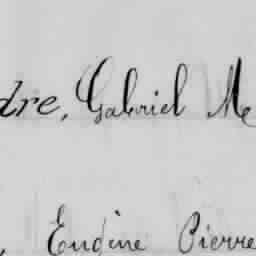 dre, Gabriel Me
, Eudine Pierre